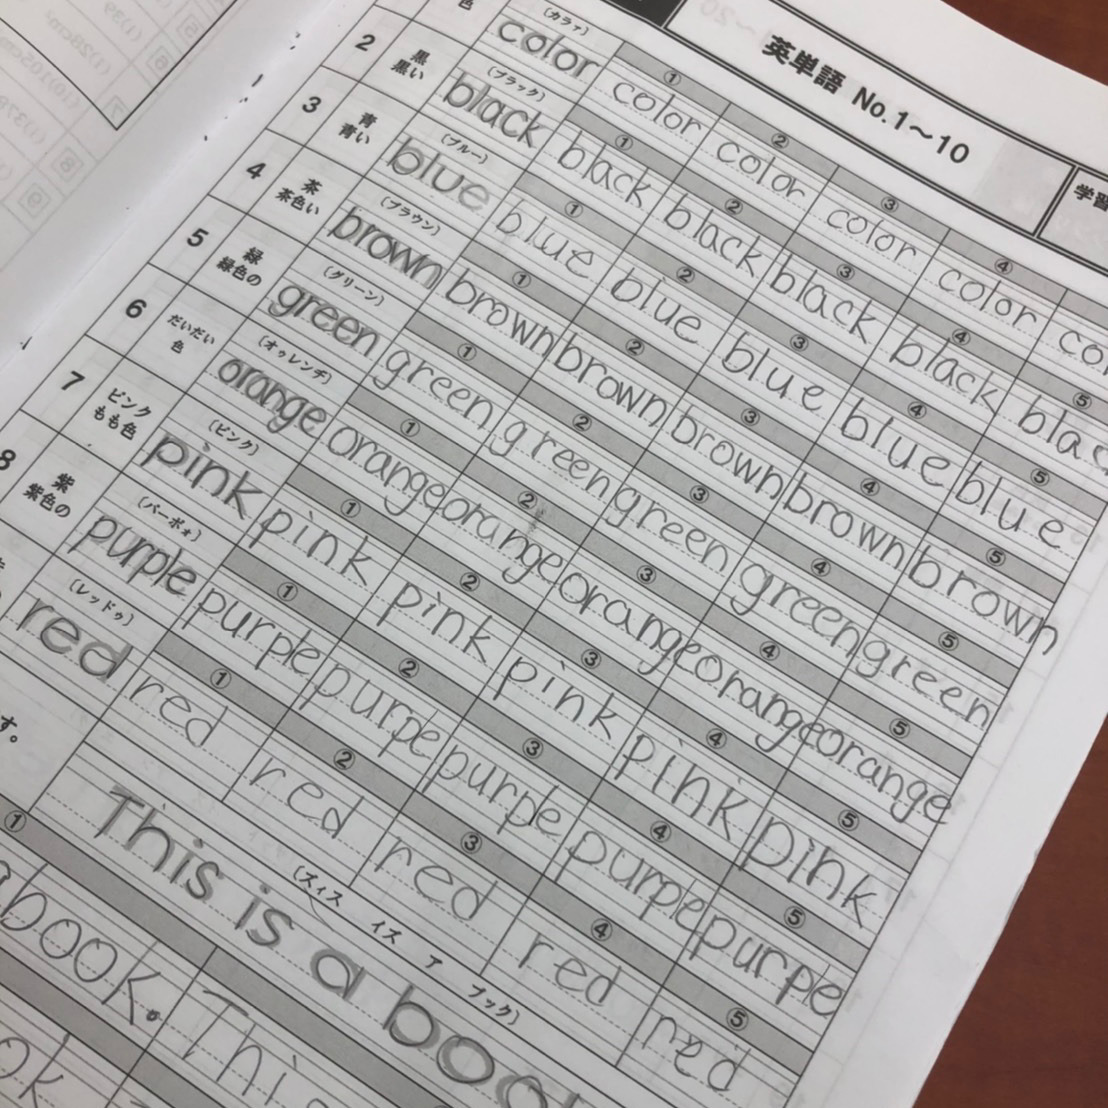 英単語 No.1～10
学習
色 (カラァ) color ① color ② color ③ color ④ color
2 黒 黒い (ブラック) black ① black ② black ③ black ④ black ⑤
3 青 青い (ブルー) blue ① blue ② blue ③ blue ④ blue ⑤ blue
4 茶 茶色い (ブラウン) brown ① brown ② brown ③ brown ④ brown ⑤ brown
5 緑 緑色の (グリーン) green ① green ② green ③ green ④ green ⑤ green
6 だいだい色 (オゥレンヂ) orange ① orange ② orange ③ orange ④ orange ⑤ orange
7 ピンク もも色 (ピンク) pink ① pink ② pink ③ pink ④ pink ⑤ pink
8 紫 紫色の (パーポォ) purple ① purple ② purple ③ purple ④ purple ⑤ purple
(レッドゥ) red ① red ② red ③ red ④ red ⑤ red
す。
(ズィス イズ ア ブック)
This is a boo
① book.